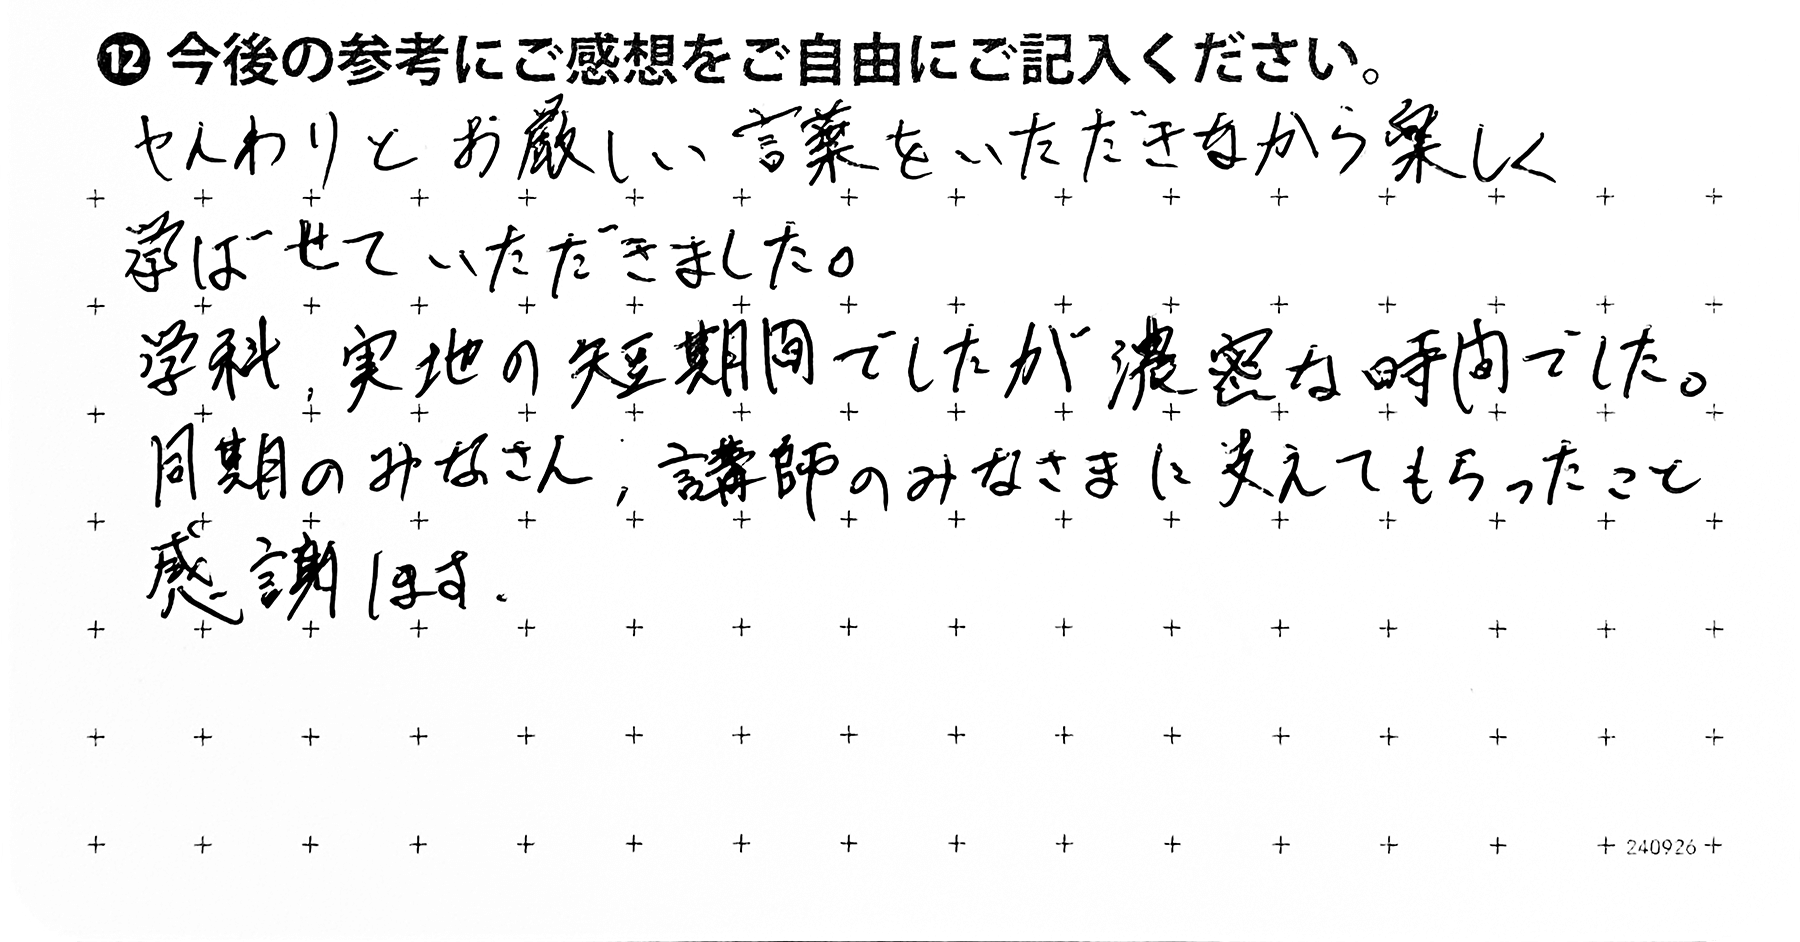 ⓬ 今後の参考にご感想をご自由にご記入ください。
やんわりとお厳しい言葉をいただきながら楽しく
学ばせていただきました。
学科、実地の短期間でしたが濃密な時間でした。
同期のみなさん、講師のみなさまに支えてもらったこと
感謝します.
240926